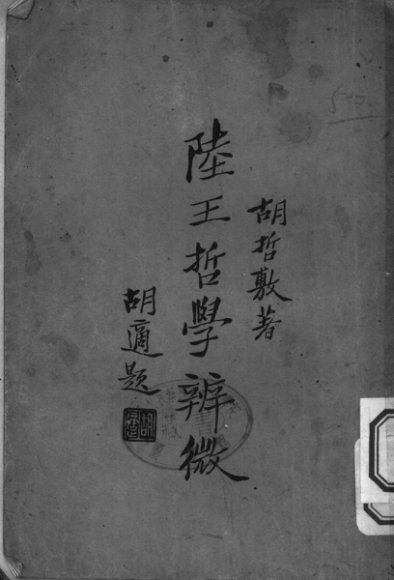 胡哲敷著
陸王哲學辨微
胡適題